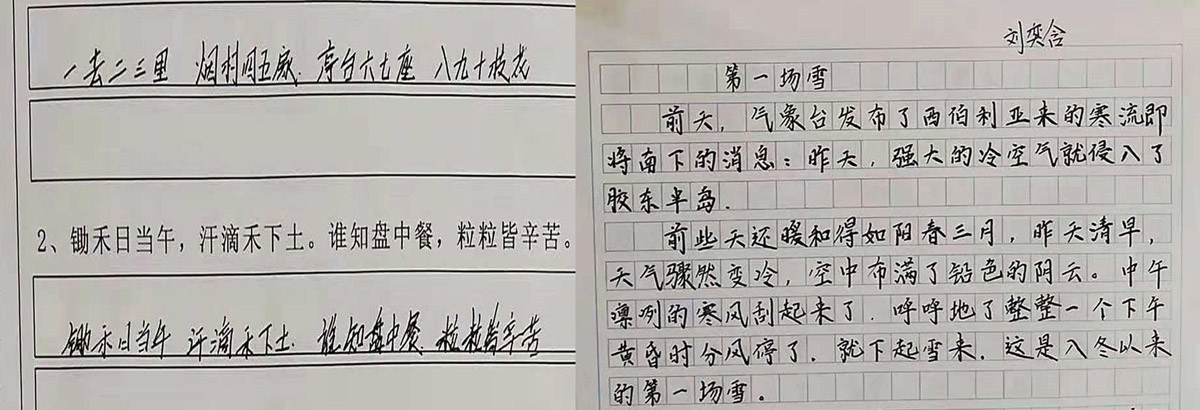 一去二三里 烟村四五家 亭台六七座 八九十枝花
2、锄禾日当午，汗滴禾下土。谁知盘中餐，粒粒皆辛苦。
锄禾日当午 汗滴禾下土. 谁知盘中餐. 粒粒皆辛苦
刘奕含
第一场雪
前天，气象台发布了西伯利亚来的寒流即
将南下的消息：昨天，强大的冷空气就侵入了
胶东半岛.
前些天还暖和得如阳春三月，昨天清早，
天气骤然变冷，空中布满了铅色的阴云。中午
凛冽的寒风刮起来了.呼呼地了整整一个下午
黄昏时分风停了.就下起雪来.这是入冬以来
的第一场雪。